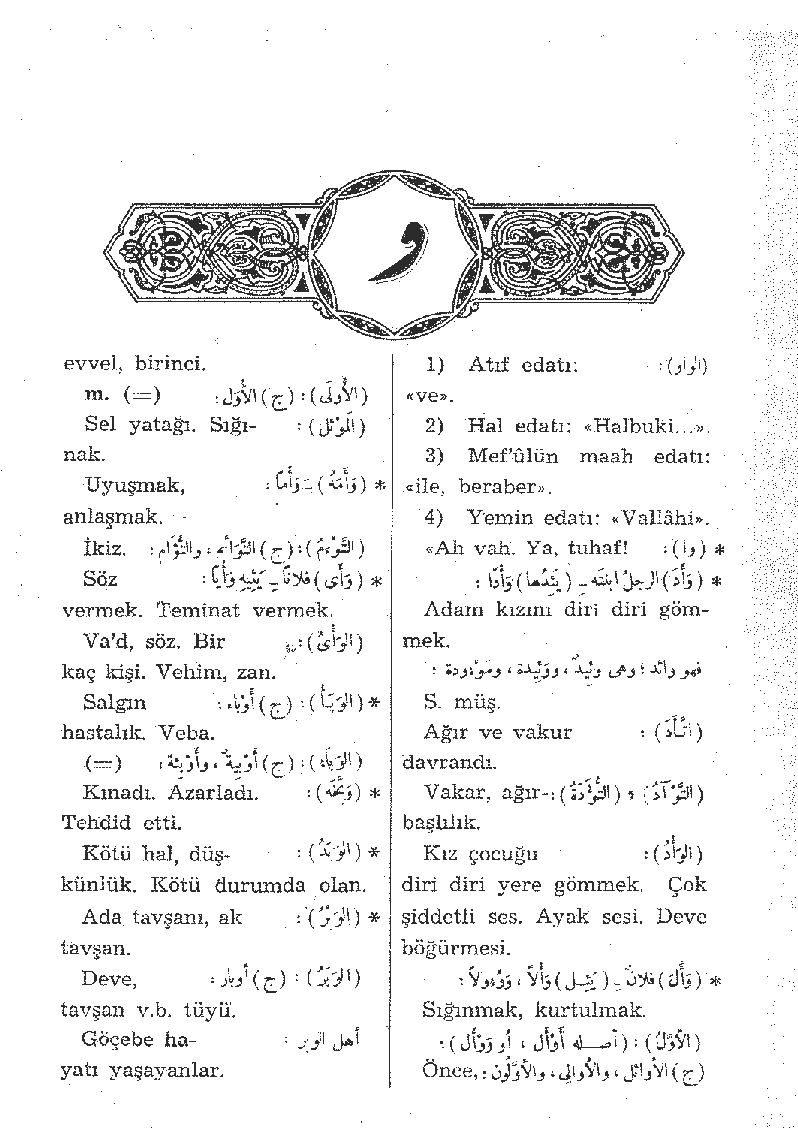 و
(الواو): 1) Atıf edatı:
«ve».
2) Hal edatı: «Halbuki...».
3) Mef'ûlün maah edatı:
«ile, beraber».
4) Yemin edatı: «Vallâhi».
* (وا): «Ah vah. Ya, tuhaf!
* (وَأَدَ) الرجلُ ابنته ـِ (يَئِدُها) وَأْدًا :
Adam kızını diri diri göm-
mek.
فهو وائد ؛ وهى وئيدٌ ، ووَئِيدَة ، وموْءودة :
S. müş.
(اتَّأَدَ) : Ağır ve vakur
davrandı.
(التَّوْآدُ) ، (التُّؤَدَةُ) : Vakar, ağır-
başlılık.
(الوَأْدُ) : Kız çocuğu
diri diri yere gömmek. Çok
şiddetli ses. Ayak sesi. Deve
böğürmesi.
* (وَأَلَ) فلانٌ ـِ (يَئِل) وَأْلاً ، وَوُءولاً :
Sığınmak, kurtulmak.
(الأوَّلُ) : (أصله أَوْأَل ، أو وَوْأَل) :
(ج) الأوائل ، والأوالى ، والأوَّلون : Önce,
evvel, birinci.
(الأُولَى) : (ج) الأُوَل : m. (=)
(المَوْئل) : Sel yatağı. Sığı-
nak.
* (وَأَمَهُ) ـَ وَأْمًا : Uyuşmak,
anlaşmak.
(التَّوْءَم) : (ج) التَّوائم ، والتُّؤَام : İkiz.
* (وَأَى) فلانًا ـِ يَئِيه وَأْيًا : Söz
vermek. Teminat vermek.
(الوَأْىُ) : Va'd, söz. Bir
kaç kişi. Vehim, zan.
* (الوَبَأُ) : (ج) أوْبَاء : Salgın
hastalık. Veba.
(الوَبَاء) : (ج) أوْبِيَة ، وأوْبِئَة : (=)
* (وَبَّخَه) : Kınadı. Azarladı.
Tehdid etti.
* (الوَبَدُ) : Kötü hal, düş-
künlük. Kötü durumda olan.
* (الوَبْرُ) : Ada tavşanı, ak
tavşan.
(الوَبَرُ) : (ج) أوبار : Deve,
tavşan v.b. tüyü.
أهل الوبر : Göçebe ha-
yatı yaşayanlar.